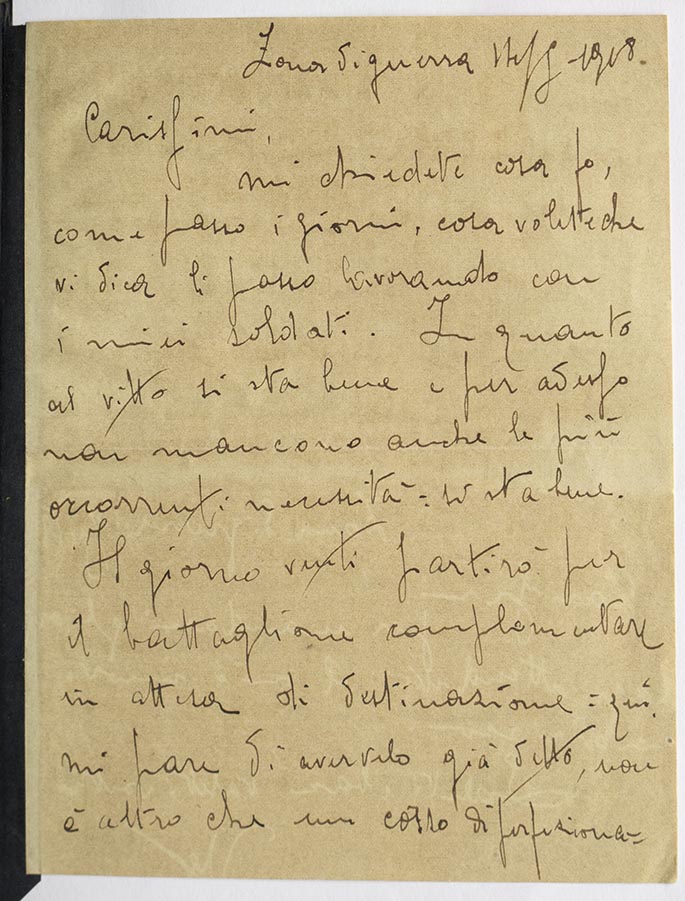 Zona di guerra 1918.
Carissimi,
mi chiedete cosa fo,
come passo i giorni, cosa volete che
vi dica li passo lavorando con
i miei soldati. In quanto
al vitto si sta bene e per adesso
non mancono anche le più
occorrenti necessità = si sta bene.
Il giorno venti partirò per
il battaglione complementare
in attesa di destinazione = qui,
mi pare di avervelo già detto, non
è altro che un corso di perfeziona=